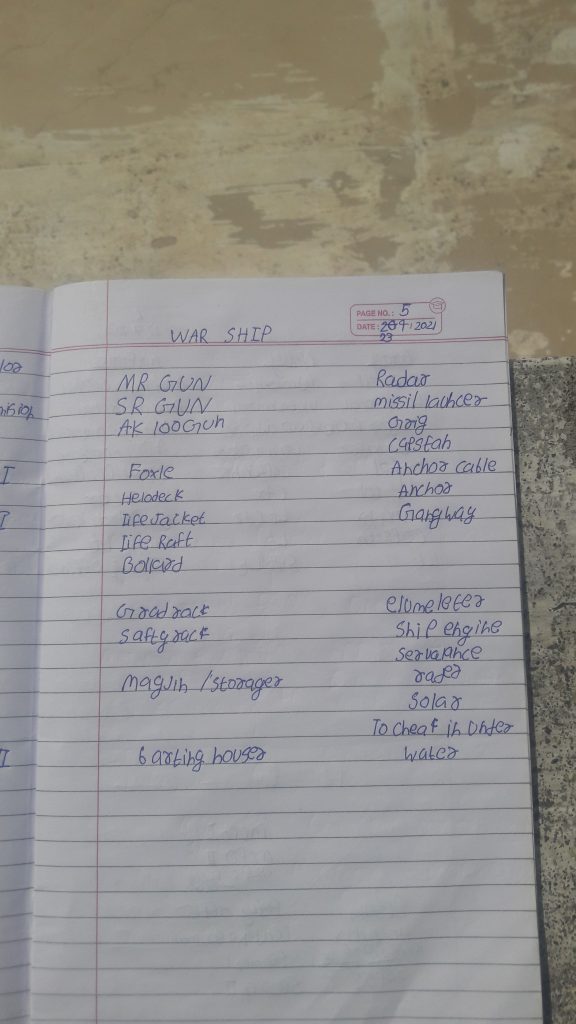 PAGE NO.: 5
DATE: 9/2021
23
WAR SHIP
MR GUN
SR GUN
AK 100 Gun
Foxle
Helodeck
life Jacket
life Raft
Bollard
Gradrack
Saftyrack
/storager
6 arting houser
Radar
missil lachcer
Capstah
Anchor cable
Anchor
Gangway
elumeleter
Ship engine
Servavhce
rader
Solar
To cheak in Unter
water
I
I
II